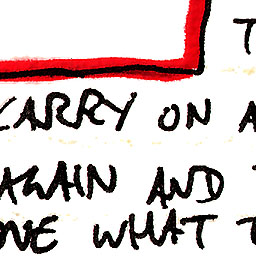 T
CARRY ON A
AGAIN AND
ONE WHAT T